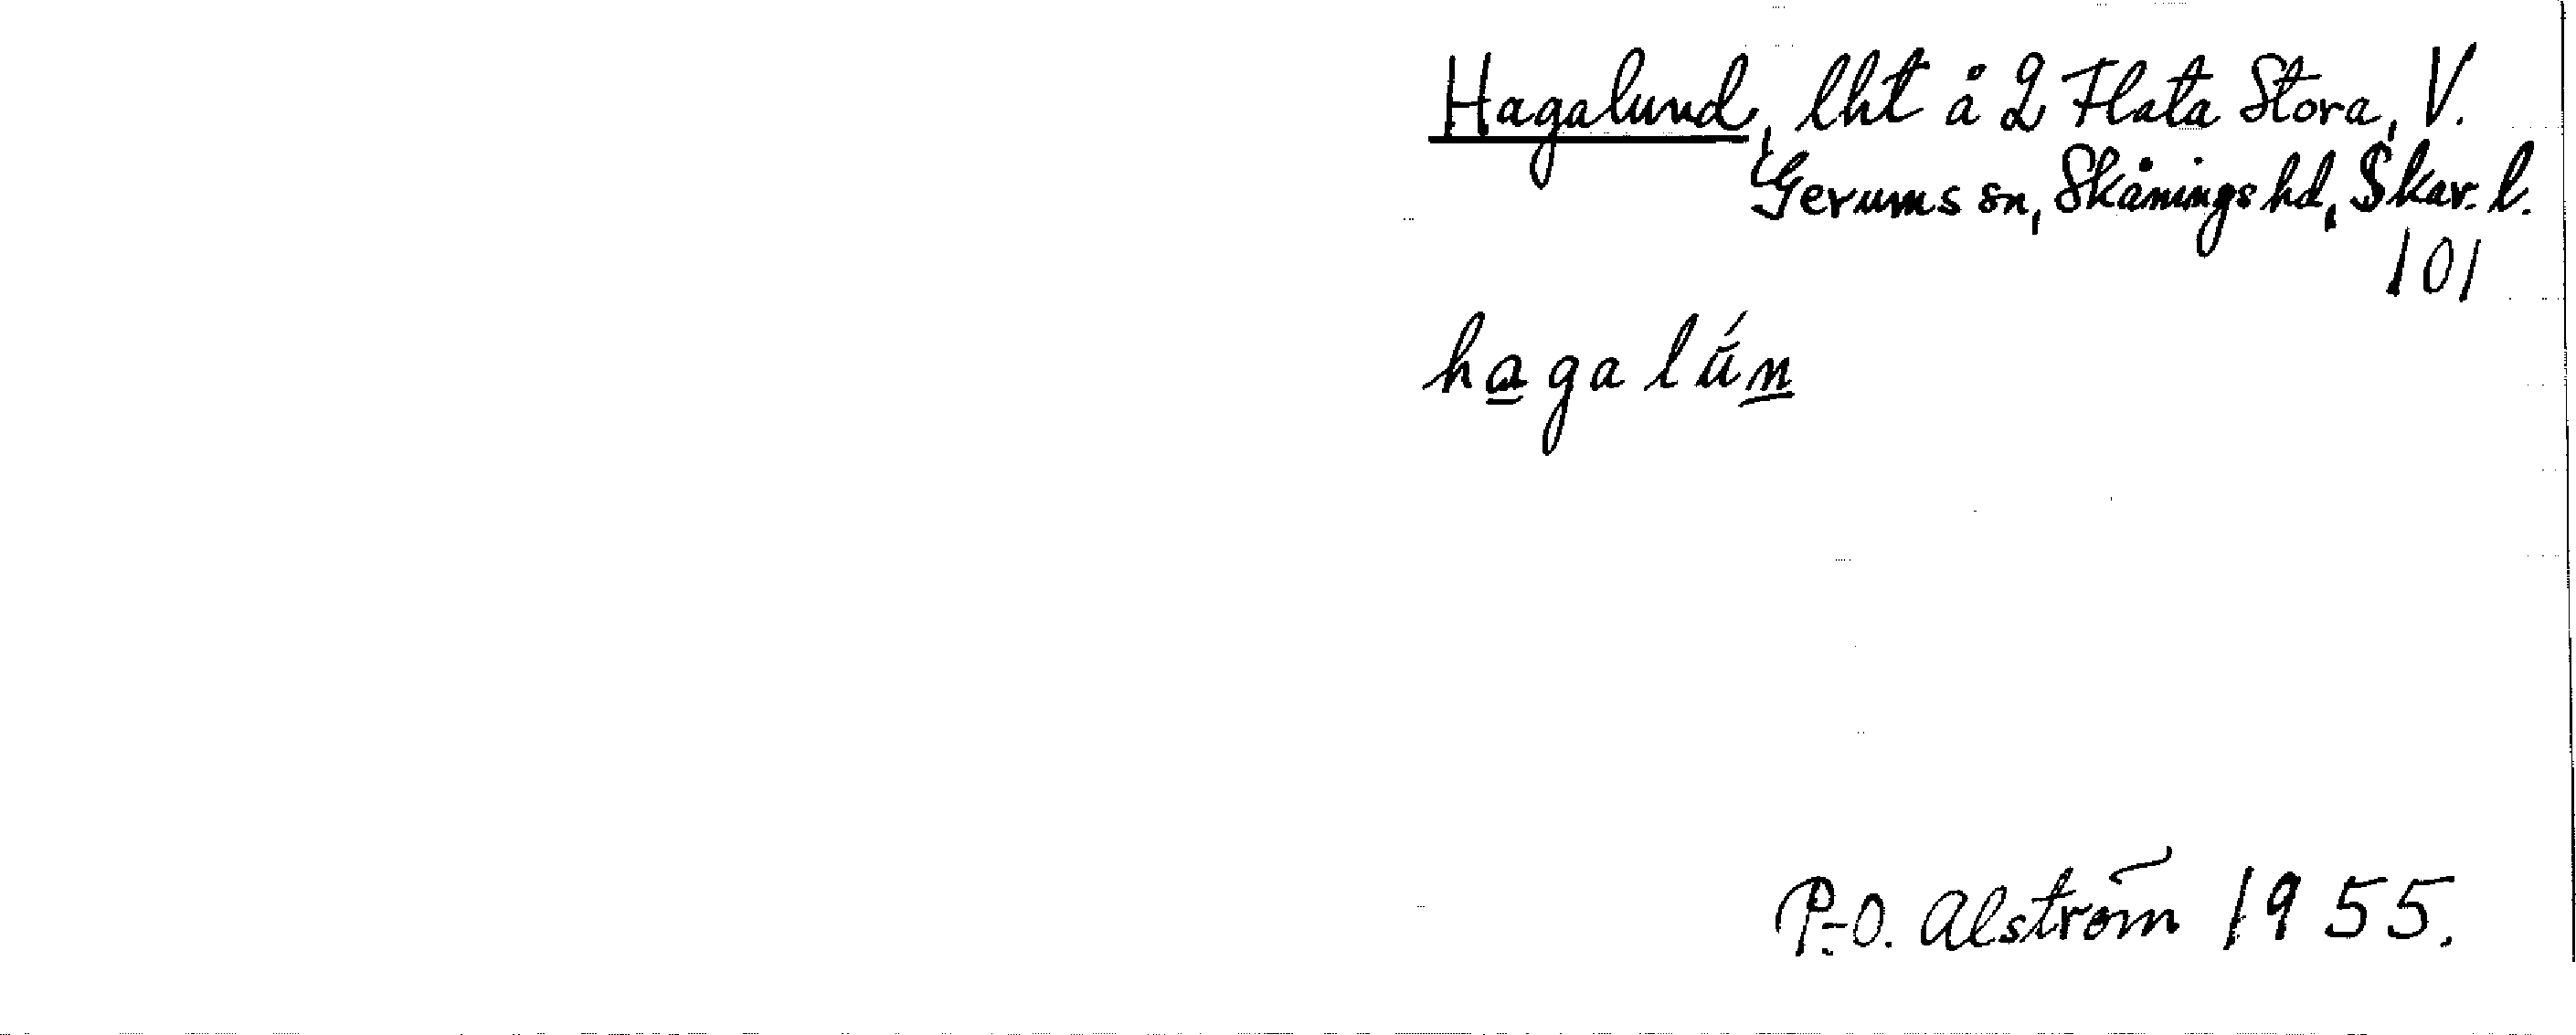 Hagalund, lht å 2 Flata Stora, V.
Gerums sn, Skånings hd, Skar. l.
101
hagalún
P.-O. Alström 1955.